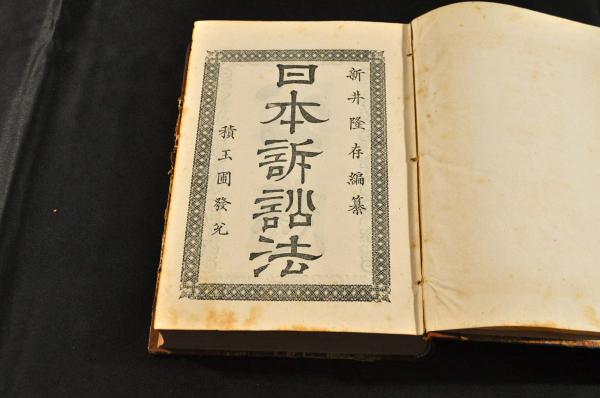 新井隆存編纂
日本訴訟法
積玉圃發兌